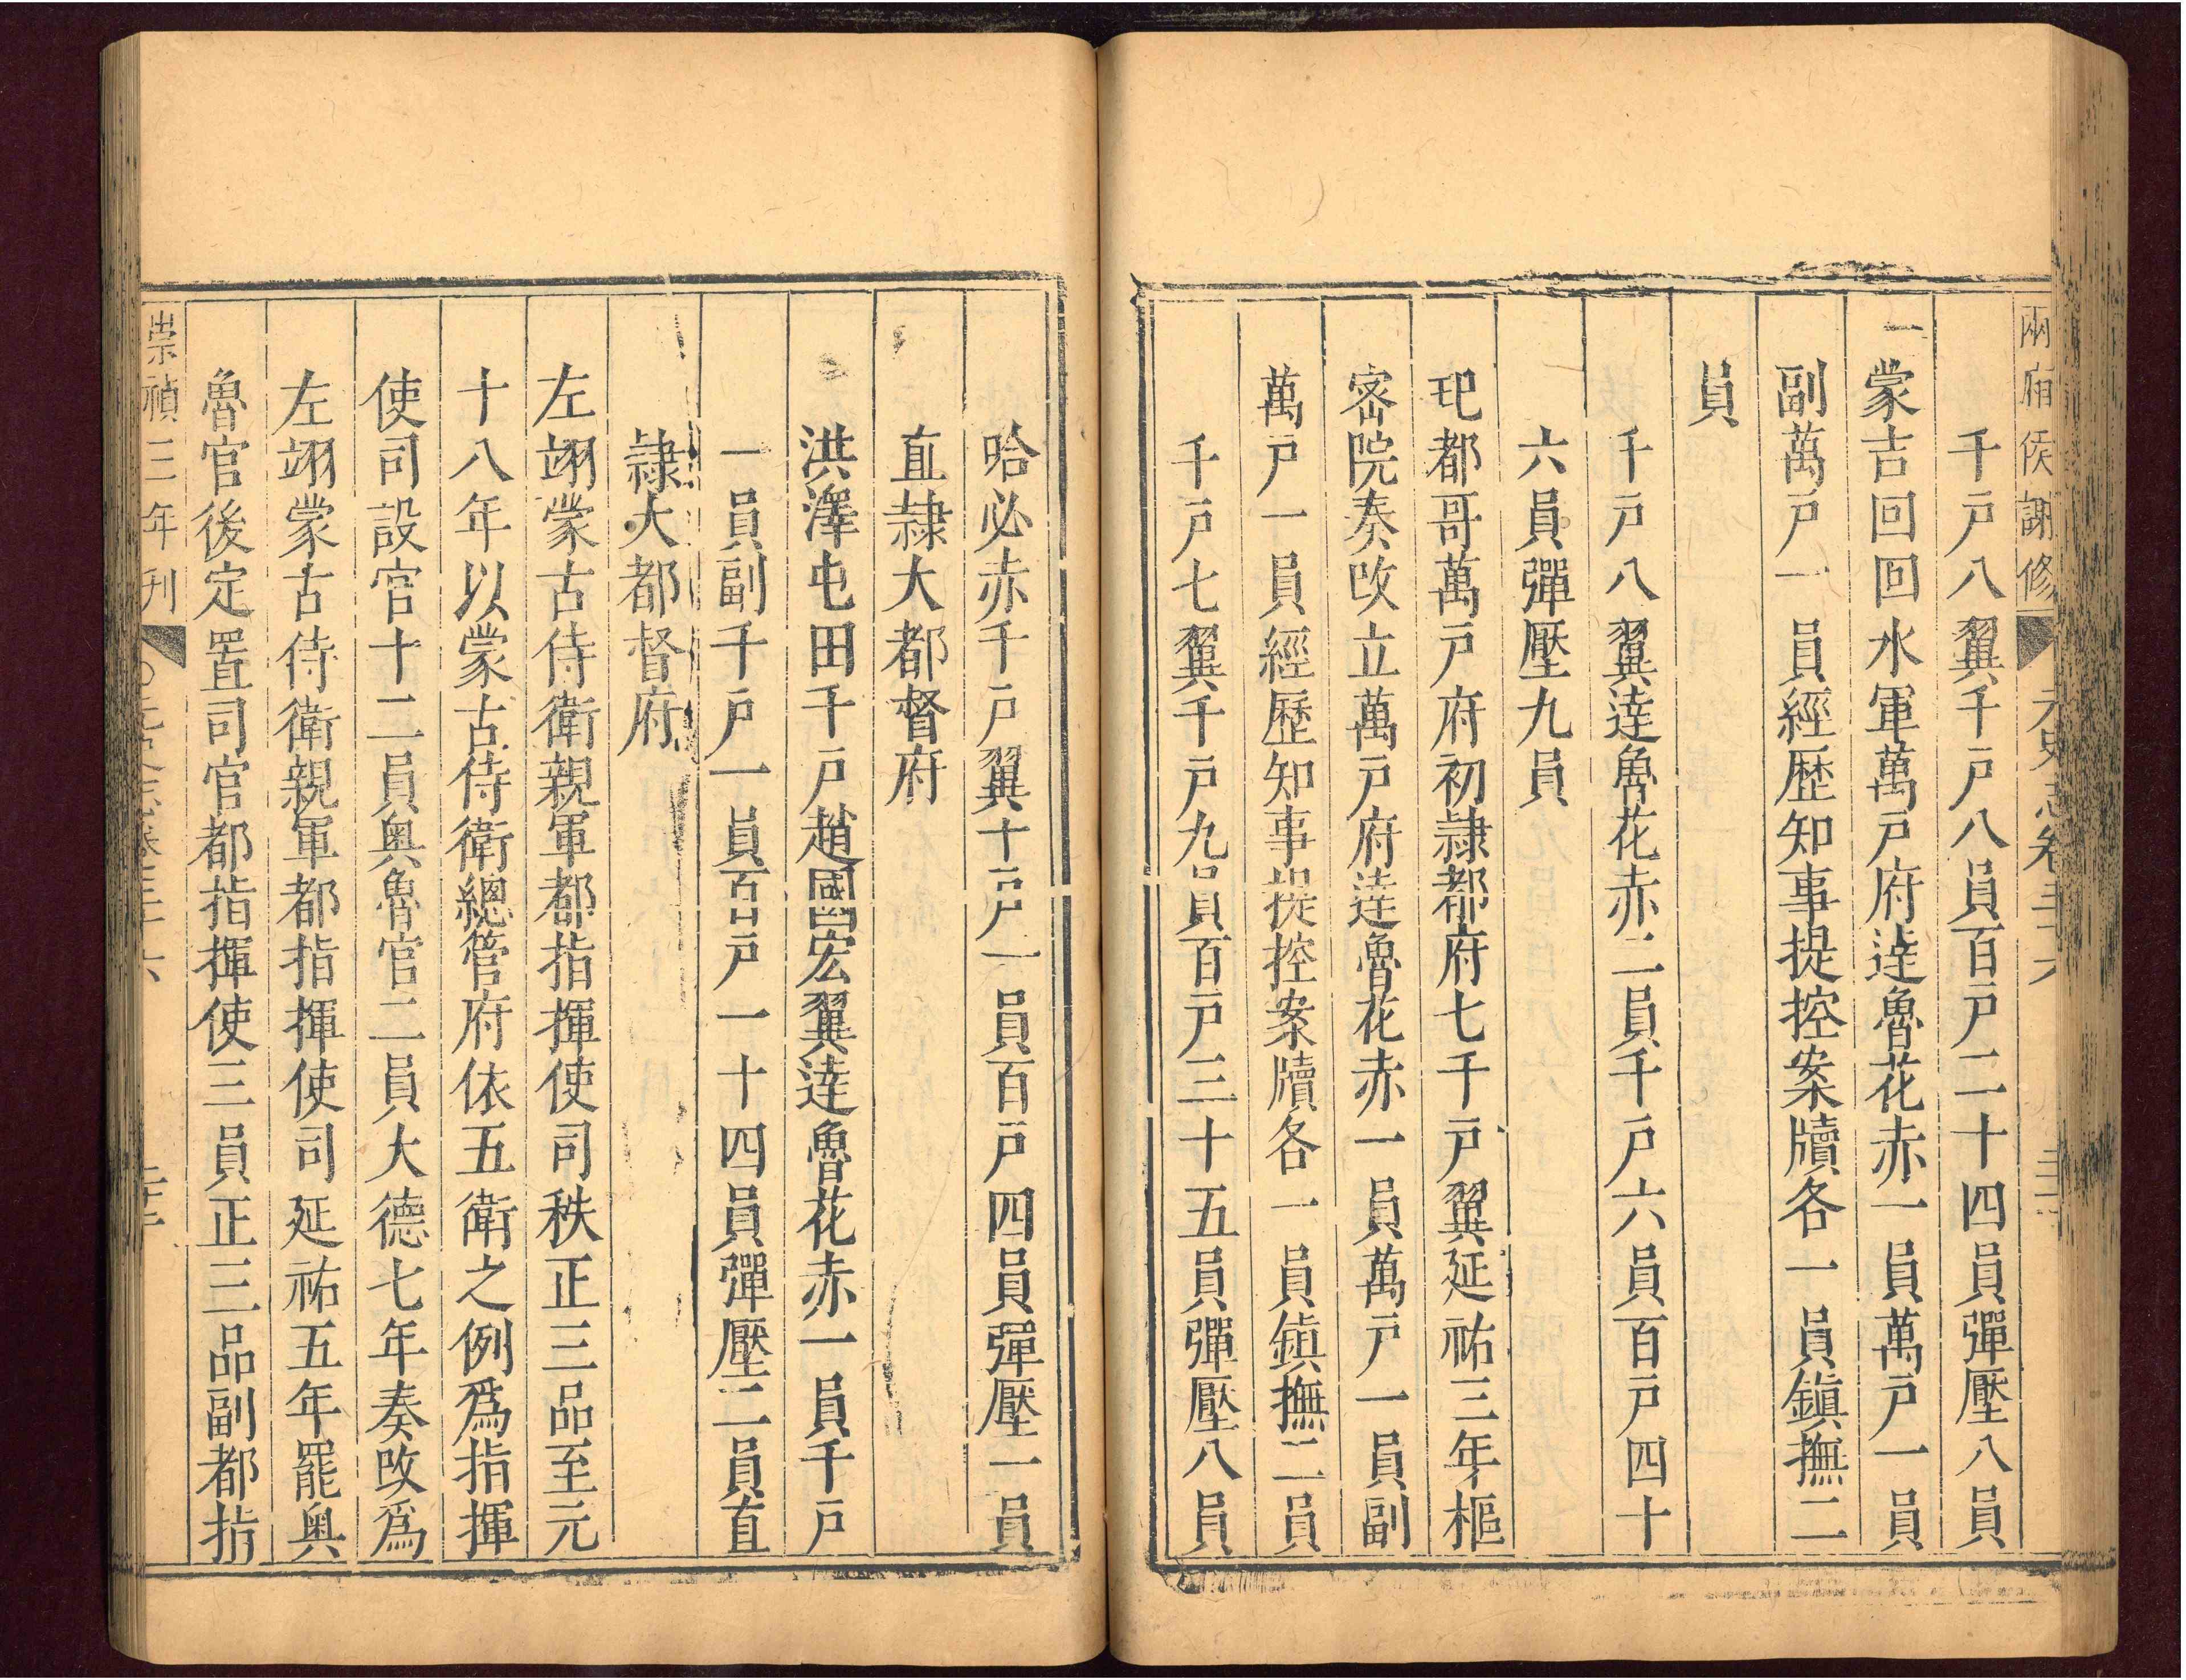 兩廂侯謝修 元史志卷三十六
千戸八翼千戸八員百戸二十四員彈壓八員
蒙古回回水軍萬戸府達魯花赤一員萬戸一員
副萬戸一員經歴知事提控案牘各一員鎮撫二
員
千戸八翼達魯花赤二員千戸六員百戸四十
六員彈壓九員
玘都哥萬戸府初隷都府七千戸翼延祐三年樞
密院奏攺立萬戸府達魯花赤一員萬戸一員副
萬戸一員經歷知事提控案牘各一員鎮撫二員
千戸七翼千戸九員百戸三十五員彈壓八員
哈必赤千戸翼千戸一員百戸四員彈壓一員
直隷大都督府
洪澤屯田千戸趙國宏翼達魯花赤一員千戸
一員副千戸一員百戸一十四員彈壓二員直
隷大都督府
左翊蒙古侍衛親軍都指揮使司秩正三品至元
十八年以蒙古侍衛總管府依五衛之例爲指揮
使司設官十二員奥魯官二員大德七年奏攺爲
左翊蒙古侍衛親軍都指揮使司延祐五年罷奥
魯官後定置司官都指揮使三員正三品副都指
崇禎三年刊 元史志卷三十六